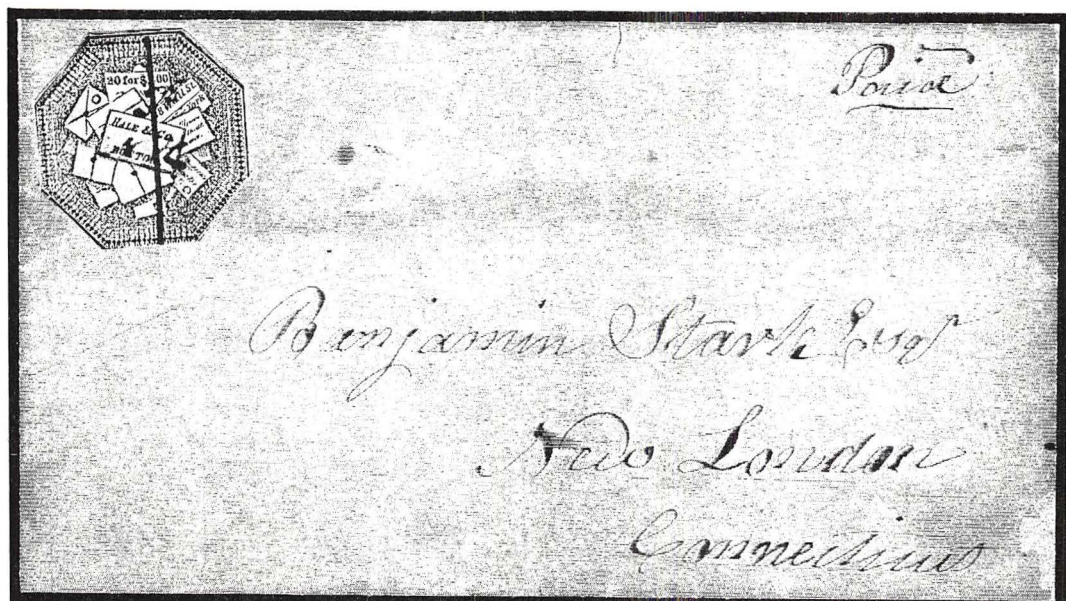 20 for $1.00
HALE & Co.
BOSTON
Paid
Benjamin Stark Esqr
New London
Connecticut